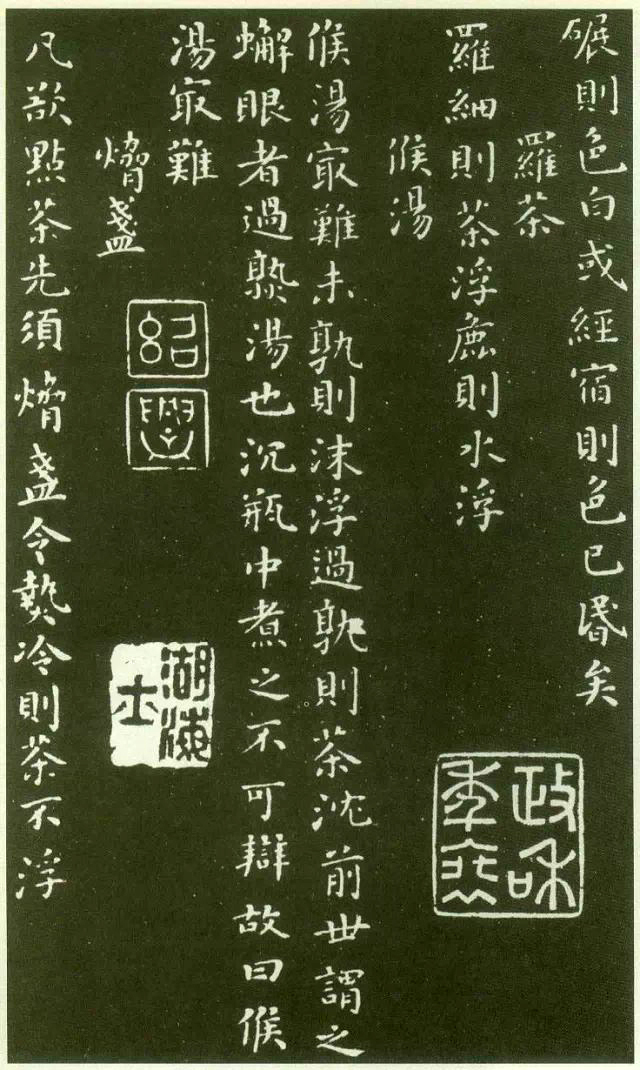 碾則色白或經宿則色已昬矣
羅茶
羅細則茶浮麁則水浮
候湯
候湯㝡難未孰則沫浮過孰則茶沈前世謂之
蠏眼者過熟湯也沉瓶中煮之不可辯故曰候
湯㝡難
熁盞
凡欲點茶先須熁盞令熱冷則茶不浮
政和
紹
興
湖海
士